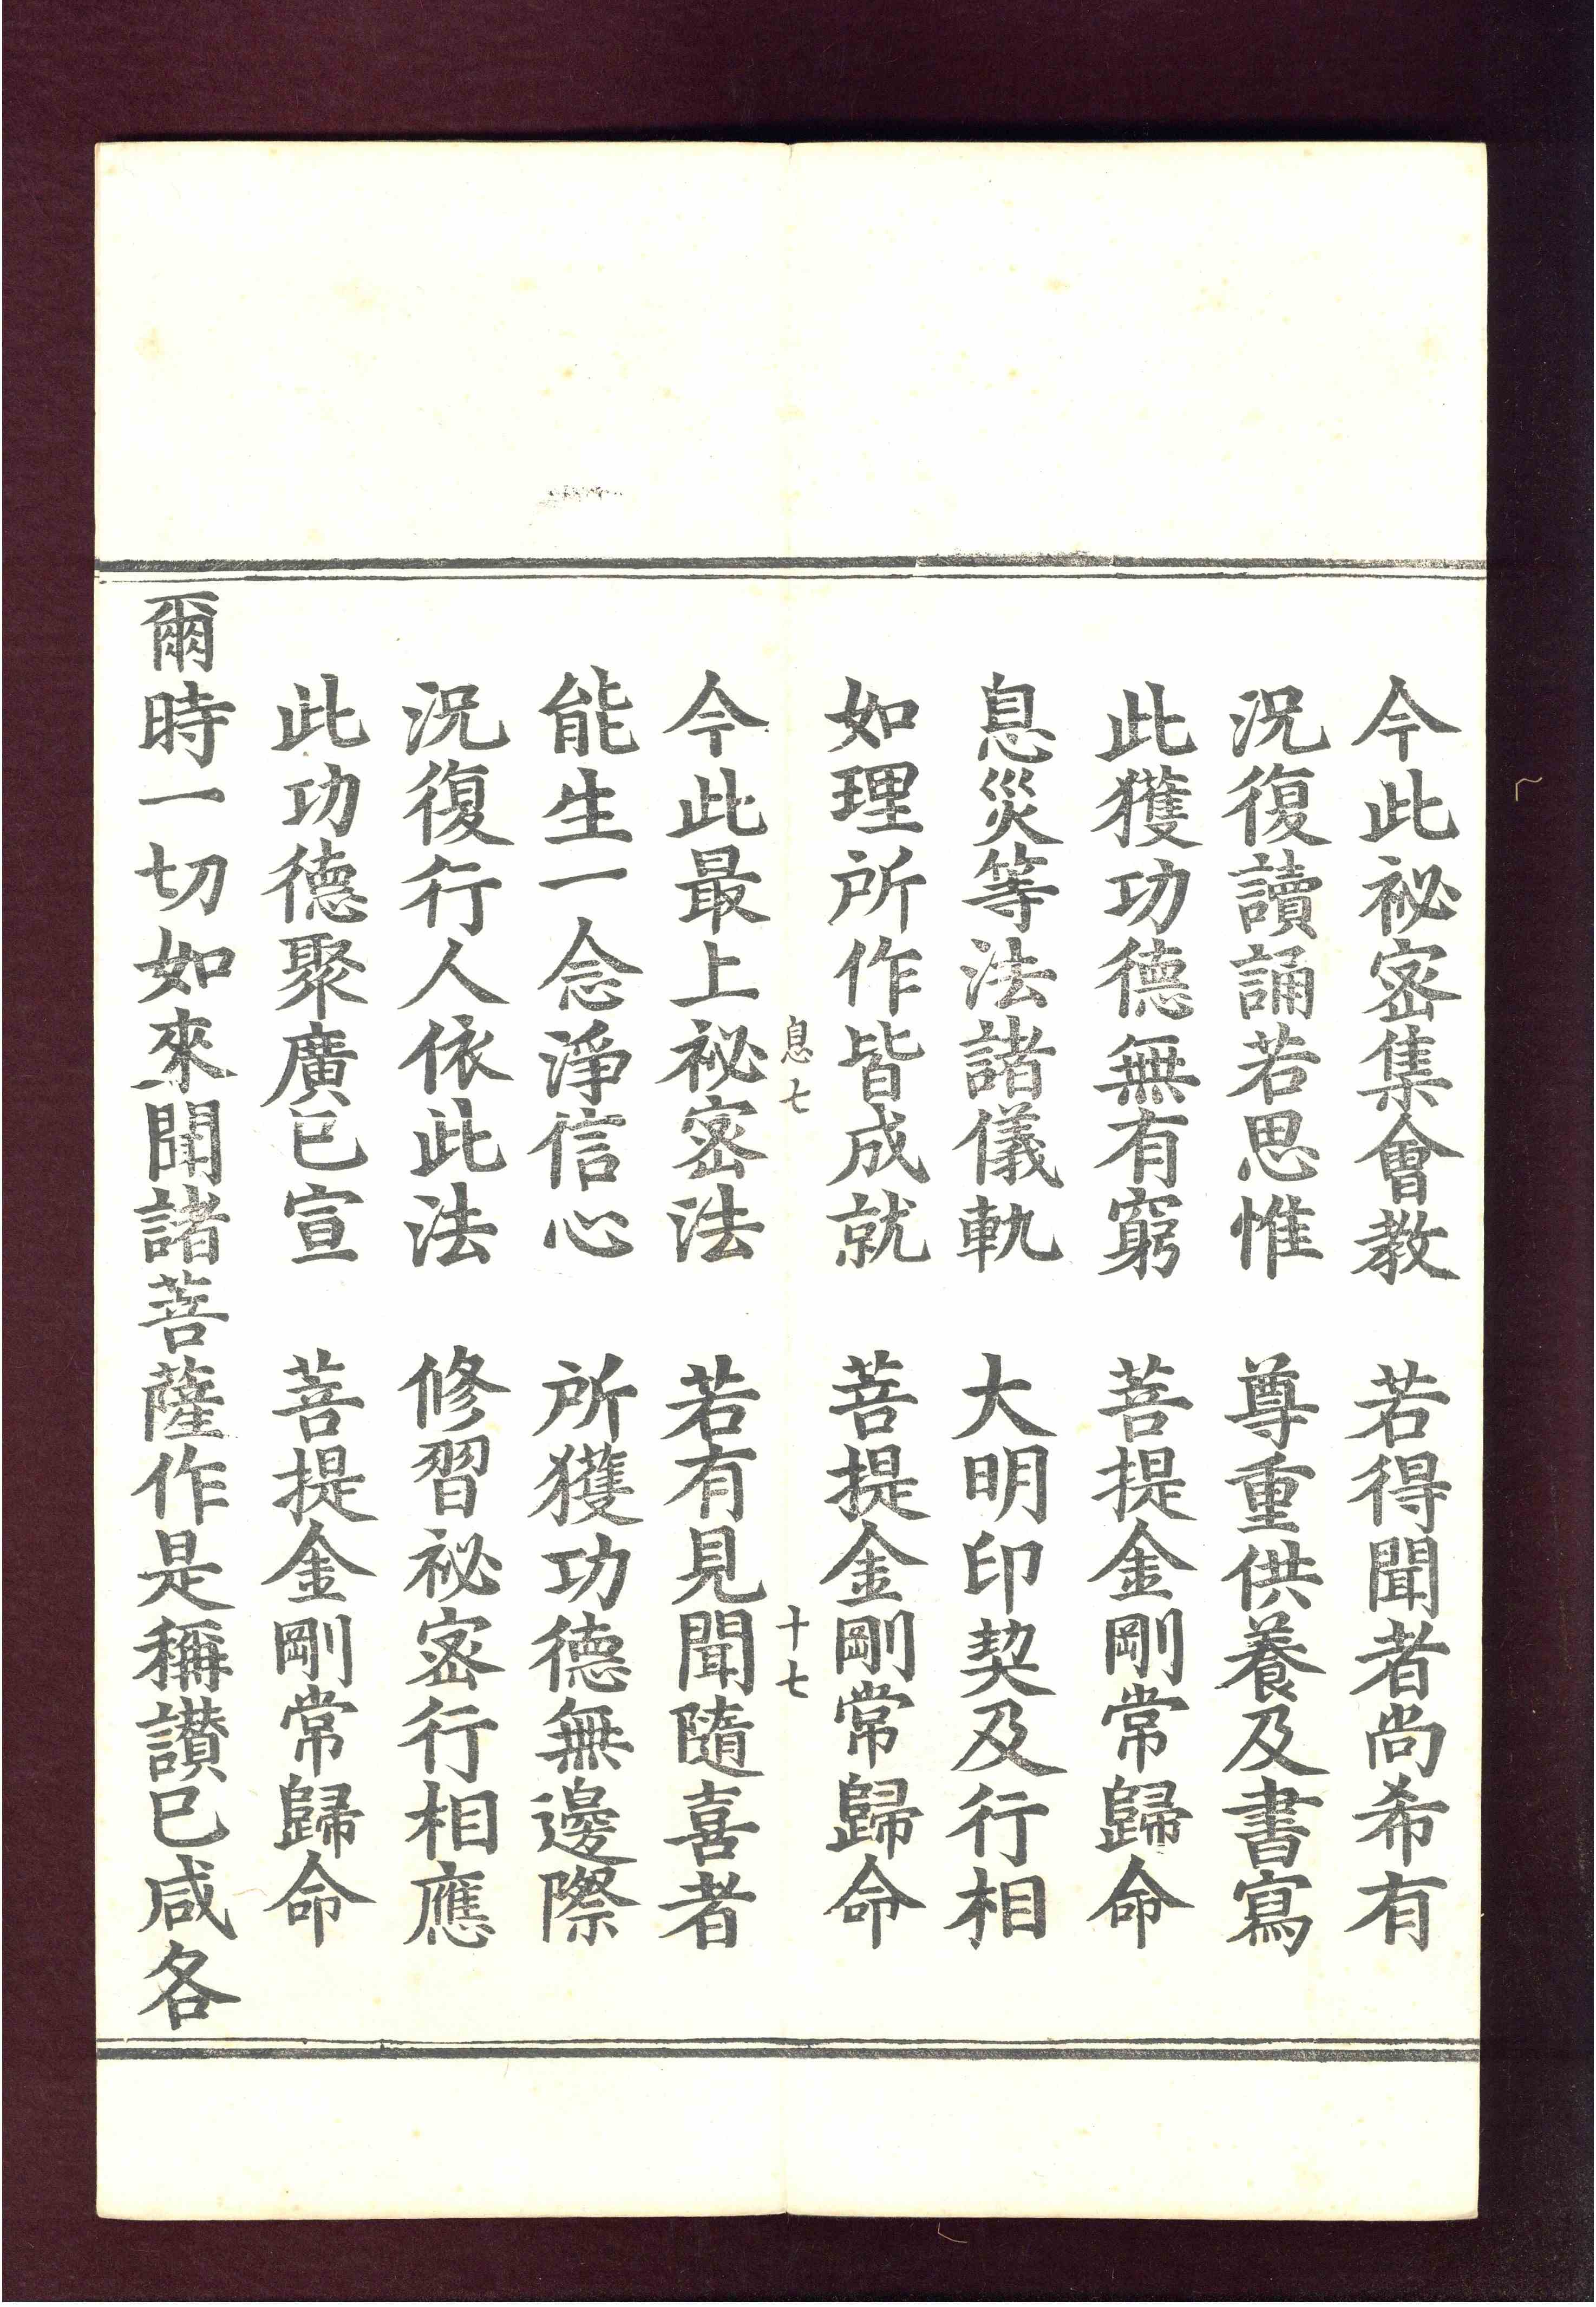 今此祕密集會教　若得聞者尚希有
況復讀誦若思惟　尊重供養及書寫
此獲功德無有窮　菩提金剛常歸命
息災等法諸儀軌　大明印契及行相
如理所作皆成就　菩提金剛常歸命
息七　十七
今此最上祕密法　若有見聞隨喜者
能生一念淨信心　所獲功德無邊際
況復行人依此法　修習祕密行相應
此功德聚廣已宣　菩提金剛常歸命
爾時一切如來聞諸菩薩作是稱讚已咸各